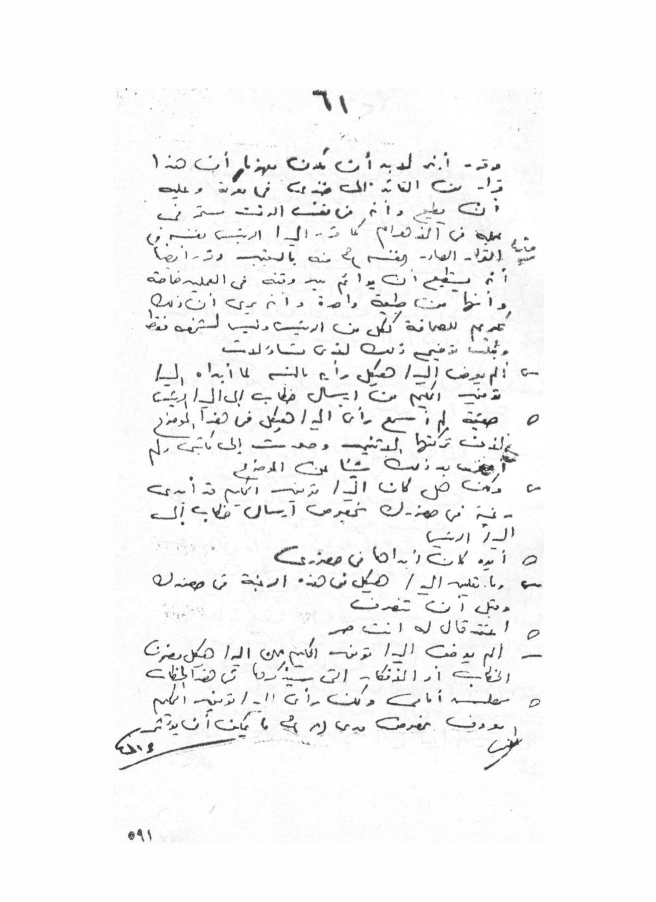 ٦١
وقرر أنه لابد أن تكون مهزار أن هذا
قرار من القائد إلى جندى فى معركة وعليه
أن يطيع وأنه من نفس الوقت يستمر فى
عمله فى الأهرام كما قرر السيد/ الرئيس نفسه فى
القرار الصادر بالتعيين وقرر أيضاً
أنه يستطيع أن يوائم بين وقته فى العملين خاصة
وأنهما من طبيعة واحدة وأنه يرى أن ذلك
تكريم للصحافة ككل من الرئيس وليس لشخصه فقط
ذلك لدى تساؤلات
س ألم يعرض السيد/ هيكل رأيه بالنسبة لما أبداه السيد/
توفيق الحكيم من إرسال خطاب إلى السيد الرئيس
ج حقيقة لم أسمع رأى السيد/ هيكل فى هذا الموضوع
لأننى تركتهما الاثنين وعدت إلى مكتبى ولم
أعرف بعد ذلك شيئا عن الموضوع
س ولكن هل كان السيد/ توفيق الحكيم قد أبدى
رغبة فى حضورك بخصوص إرسال خطاب إلى
السيد/ الرئيس
ج أيوه كان أبداها فى حضورى
س وما تعليق السيد/ هيكل فى هذه الرغبة فى حضورك
وقبل أن تنصرف
ج أعتقد قال له انت حر
س ألم يعرض السيد/ توفيق الحكيم على السيد/ هيكل
الخطاب أو الأفكار التى سيذكرها فى هذا الخطاب
ج أمامى ولكن رأى السيد/ توفيق الحكيم
معروف بخصوص مدى ما يمكن أن
٥٩١